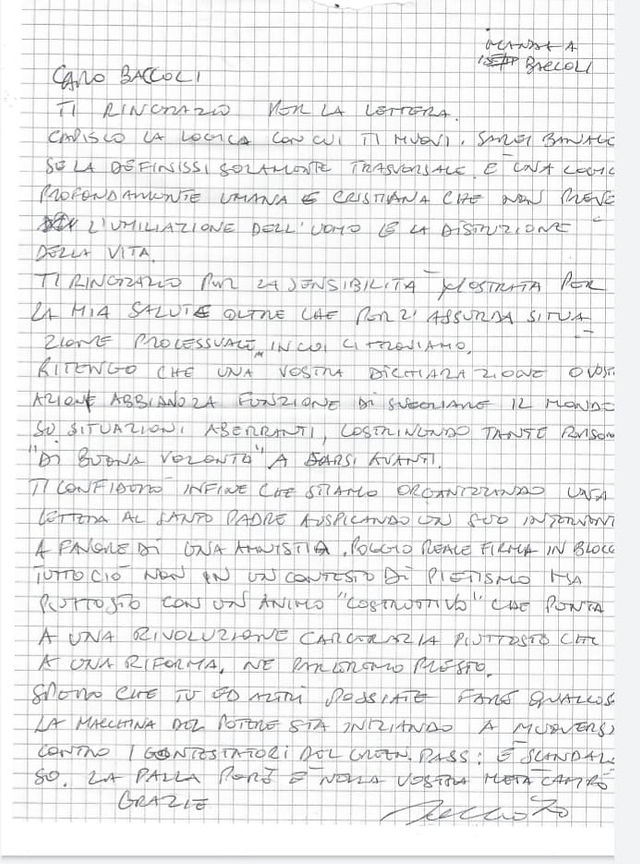 MANDATA A
BACCOLI
CARO BACCOLI
TI RINGRAZIO PER LA LETTERA.
CAPISCO LA LOGICA CON CUI TI MUOVI. SAREI BANALE
SE LA DEFINISSI SOLAMENTE TRASVERSALE. E UNA LOGIC
PROFONDAMENTE UMANA E CRISTIANA CHE NON PREVE
L'UMILIAZIONE DELL'UOMO E LA DISTRUZIONE
DELLA VITA.
TI RINGRAZIO PER LA SENSIBILITÀ MOSTRATA PER
LA MIA SALUTE OLTRE CHE PER L'ASSURDA SITUA
ZIONE PROCESSUALE IN CUI CI TROVIAMO.
RITENGO CHE UNA VOSTRA DICHIARAZIONE O VOST
AZIONE ABBIANO LA FUNZIONE DI SVEGLIARE IL MONDO
SU SITUAZIONI ABERRANTI, COSTRINGENDO TANTE PERSON
"DI BUONA VOLONTÀ" A FARSI AVANTI.
TI CONFIDO INFINE CHE STIAMO ORGANIZZANDO UNA
LETTERA AL SANTO PADRE AUSPICANDO UN SUO INTERVENT
A FAVORE DI UNA AMNISTIA. POGGIO REALE FIRMA IN BLOCC
TUTTO CIÒ NON IN UN CONTESTO DI PIETISMO MA
PIUTTOSTO CON UN ANIMO "COSTRUTTIVO" CHE PUNTA
A UNA RIVOLUZIONE CARCERARIA PIUTTOSTO CHE
A UNA RIFORMA. NE PARLEREMO PRESTO.
SPERO CHE TU ED ALTRI POSSIATE FARE QUALCOS
LA MACCHINA DEL POTERE STA INIZIANDO A MUOVERSI
CONTRO I CONTESTATORI DEL GREEN PASS: È SCANDAL
SO. LA PALLA PERÒ È NELLA VOSTRA METÀ CAMPO
GRAZIE